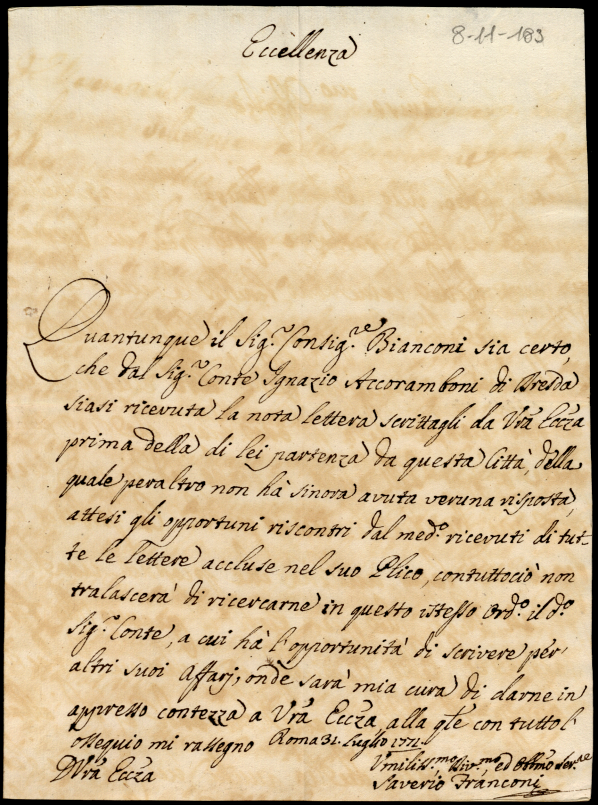 8-11-183
Eccellenza
Quantunque il Sig.re Consig.re Bianconi sia certo,
che dal Sig.re Conte Ignazio Accoramboni di Bresda
siasi ricevuta la nota lettera scrittagli da Vr̃a Ecc̃za
prima della di lei partenza da questa Città, della
quale peraltro non hà sinora avuta veruna risposta,
attesi gli opportuni riscontri dal med.o ricevuti di tut-
te le lettere accluse nel suo Plico, contuttociò non
tralascerà di ricercarne in questo istesso Ord.o il d.o
Sig.r Conte, a cui hà l'opportunità di scrivere per
altri suoi Affarj; onde sarà mia cura di darne in
appresso contezza a Vr̃a Ecc̃za, alla q̃le con tutto l'
ossequio mi rassegno Roma 31. Luglio 1771.
D Vr̃a Ecc̃za
Umiliss.mo Div.mo, ed Obl̃mo Ser.re
Saverio Franconi